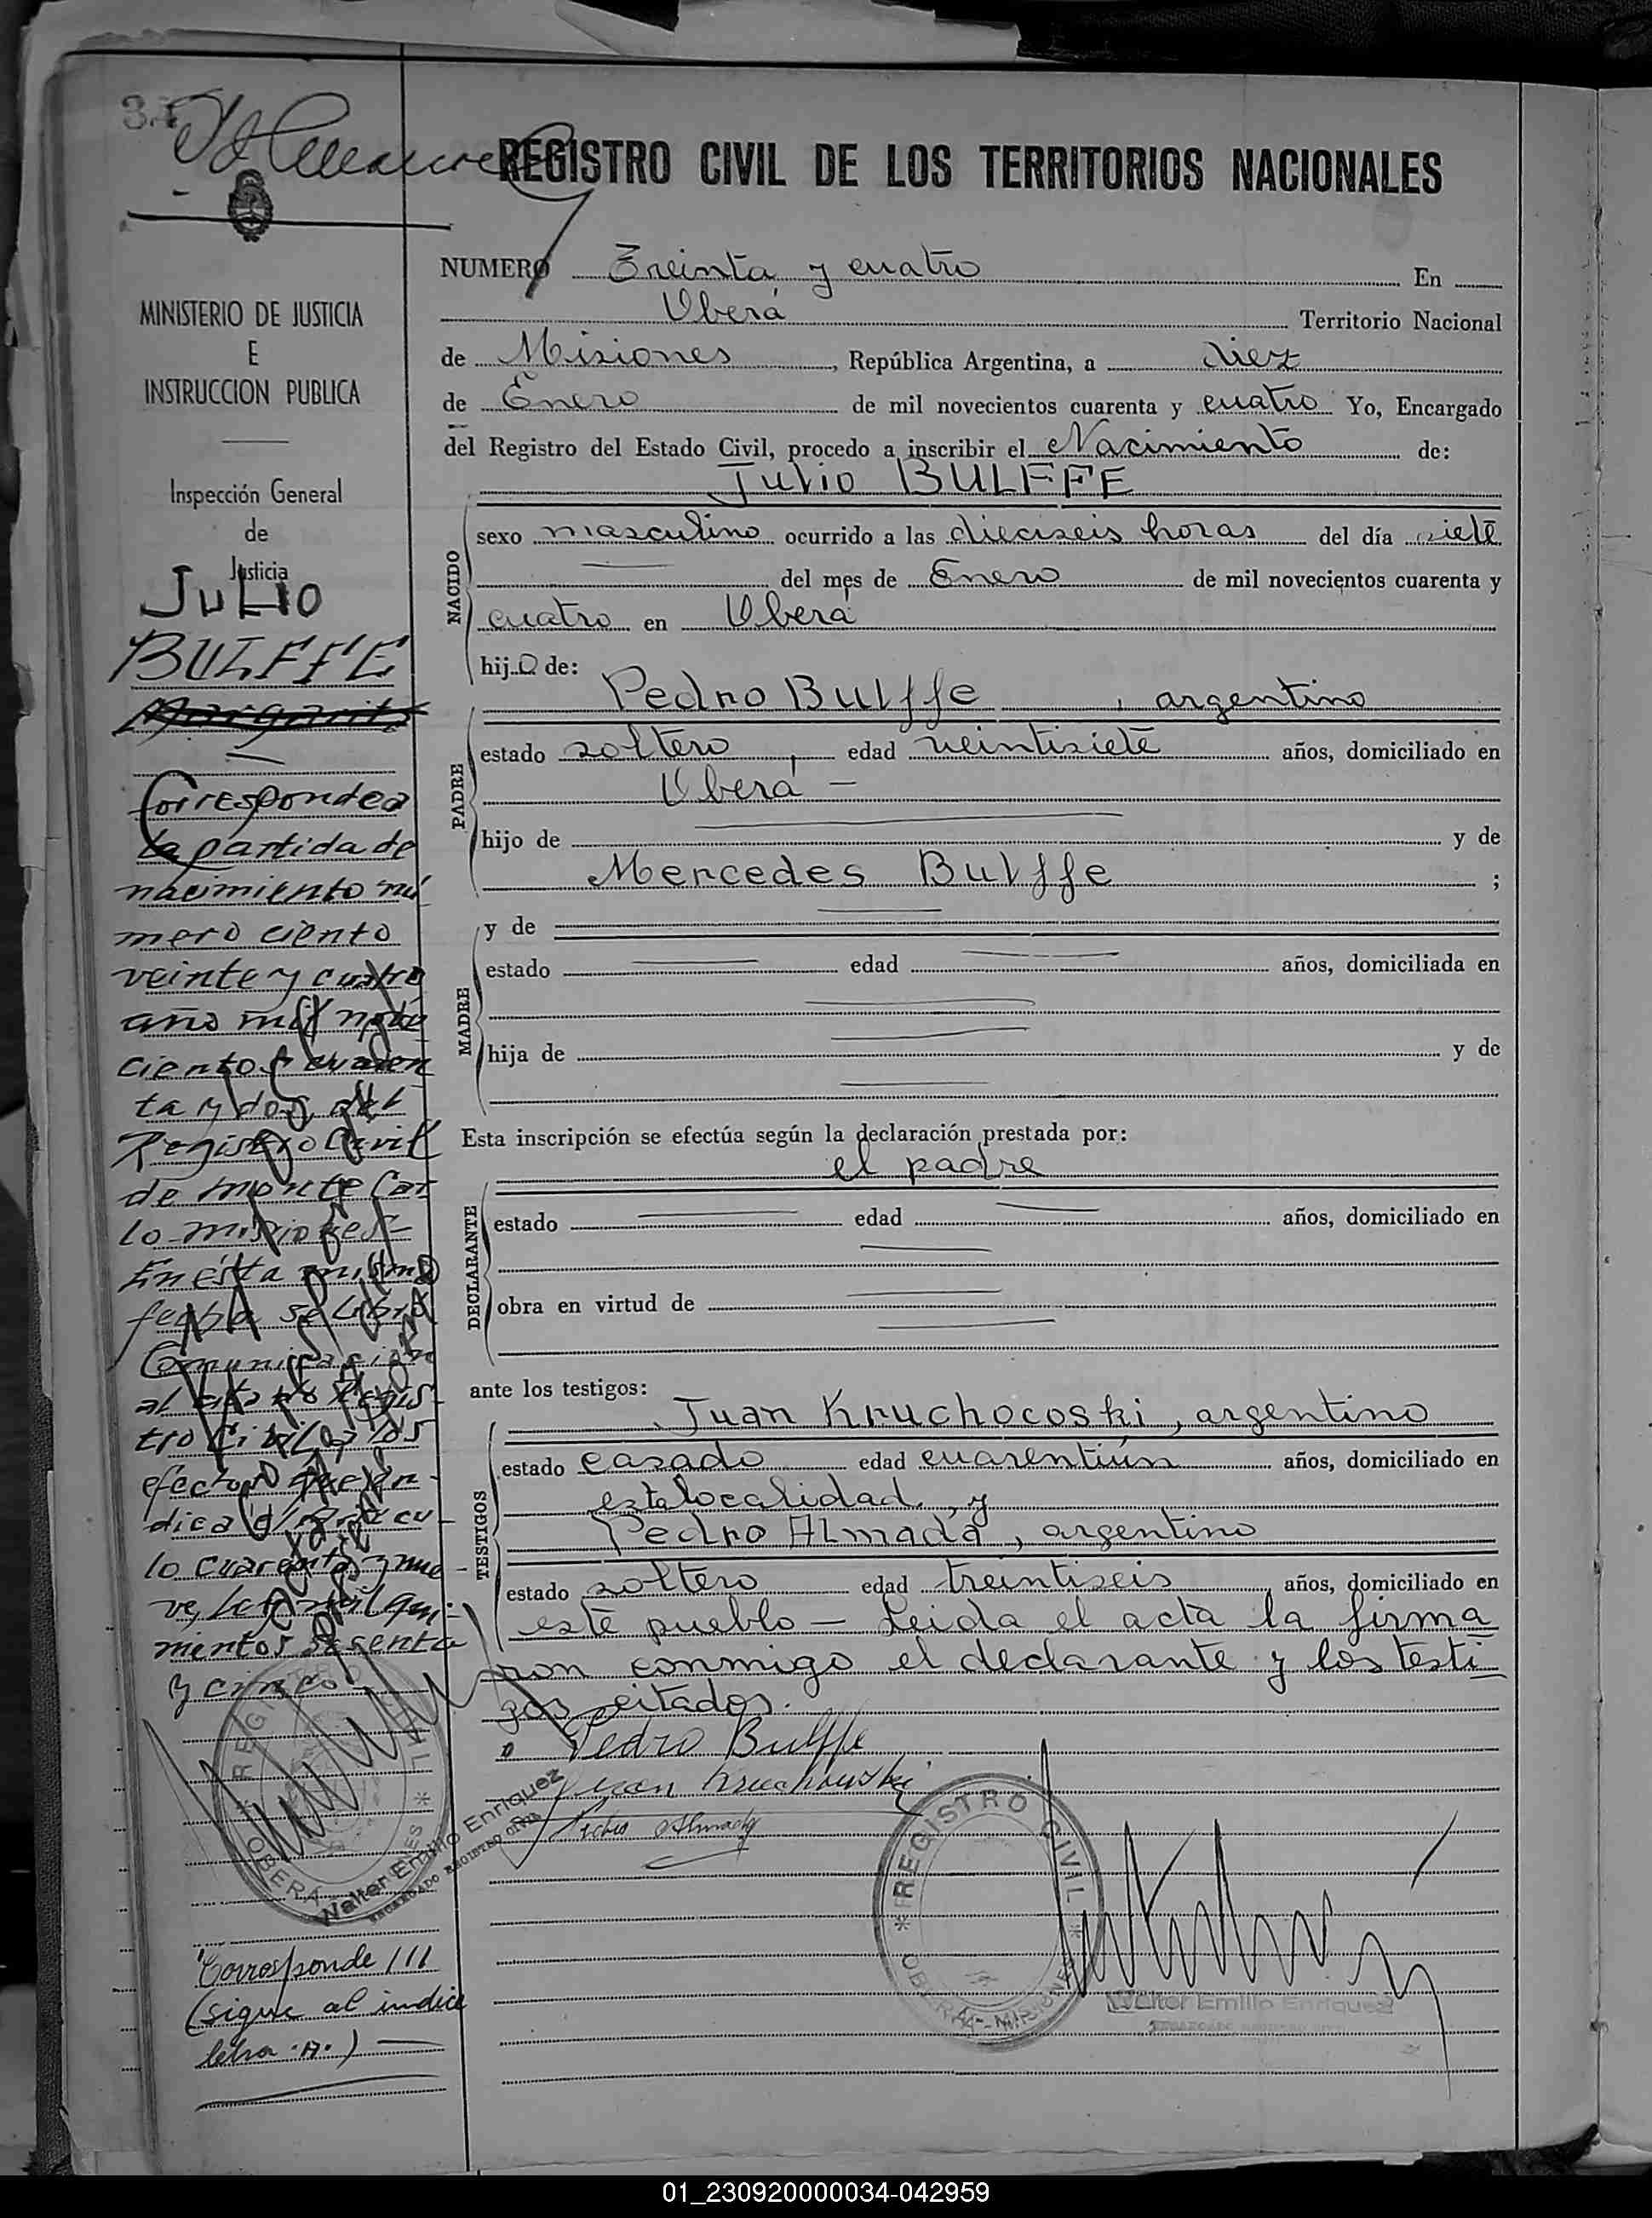 34
REGISTRO CIVIL DE LOS TERRITORIOS NACIONALES
MINISTERIO DE JUSTICIA
E
INSTRUCCION PUBLICA
Inspección General
de
Justicia
JULIO
BULFFE
Margarita
Corresponde a
la partida de
nacimiento nú
mero ciento
veinte y cuatro
año mil nove
cientos cuaren
ta y dos, del
Registro Civil
de monte Car
lo - misiones -
En esta misma
fecha se libró
Comunicación
al citado Regis-
tro Civil a los
efectos que in-
dica el artícu-
lo cuarenta y nue-
ve, ley mil qui-
nientos sesenta
y cinco
REGISTRO CIVIL
OBERA - MISIONES
Walter Emilio Enriquez
ENCARGADO REGISTRO CIVIL
Corresponde 111
(sigue al indice
letra "A")
NUMERO Treinta y cuatro En
Oberá Territorio Nacional
de Misiones, República Argentina, a diez
de Enero de mil novecientos cuarenta y cuatro Yo, Encargado
del Registro del Estado Civil, procedo a inscribir el Nacimiento de:
Julio BULFFE
NACIDO
sexo masculino ocurrido a las dieciseis horas del día siete
del mes de Enero de mil novecientos cuarenta y
cuatro en Oberá
hijo de:
PADRE
Pedro Bulffe, argentino
estado soltero, edad veintisiete años, domiciliado en
Oberá -
hijo de y de
Mercedes Bulffe ;
MADRE
y de
estado edad años, domiciliada en
hija de y de
Esta inscripción se efectúa según la declaración prestada por:
el padre
DECLARANTE
estado edad años, domiciliado en
obra en virtud de
ante los testigos:
TESTIGOS
Juan Kruchocoski, argentino
estado casado edad cuarentiún años, domiciliado en
esta localidad, y
Pedro Almada, argentino
estado soltero edad treintiseis, años, domiciliado en
este pueblo - Leida el acta la firma
ron conmigo el declarante y los testi
gos citados.
Pedro Bulffe
Juan Kruchouski
Pedro Almada
REGISTRO CIVIL
OBERA - MISIONES
Walter Emilio Enriquez
ENCARGADO REGISTRO CIVIL
01_230920000034-042959